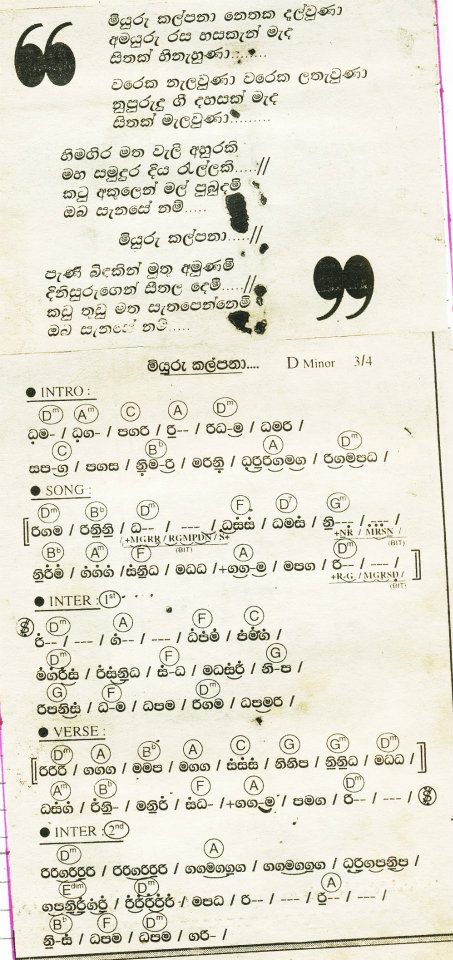 මියුරු කල්පනා නෙතක දල්වුණා
අමයුරු රස හසකැන් මැද
සිතක් හිනැහුණා........
වරෙක නැලවුණා වරෙක ලතැවුණා
නුපුරුදු ගී දහසක් මැද
සිතක් මැලවුණා.........
හිමගිර මත වැලි අහුරකි
මහ සමුදුර දිය රැල්ලකි.....//
කටු අකුලෙන් මල් පුබුදමි
ඔබ සැනසේ නම්.....
මියුරු කල්පනා.....//
පැණි බිඳකින් මුතු අමුණමි
දිනිසුරුගෙන් සීතල දෙමි.....//
කඩු තුඩු මත සැතපෙන්නෙමි
ඔබ සැනසේ නම්.....
මියුරු කල්පනා.... D Minor 3/4
● INTRO :
Dm Am C A Dm
ධ​ම- / ධ​ග- / පගරි / රි-- / රිධ-ම / ධමරි /
C Bb A Dm
සප-ග / පගස / නිම-රි / මරිනි / ධරිරිගමග / රිගමපධ /
● SONG :
Dm Bb Dm F D7 Gm
රිගම / රිනිනි / ධ-- / --- / ධසස / ධමස / නි-- / -- /
/ +MGRR / RGMPDN / S+ +NR / MRSN /
(BIT) (BIT)
Bb Am F A Dm
නිරිම / ගගග / සනිධ / මධධ / +ගග-ම / මපග / රි-- / --- /
+R-G / MGRSD /
(BIT)
● INTER : 1st
Dm A F C
රි-- / --- / ග-- / --- / ධපම / පමග /
Dm F G
මගරිස / රිසනිධ / ස-ධ / මධසරි / නි-ප /
G F Dm
රිපනිස / ධ-ම / ධපම / රිගම / ධපමරි /
● VERSE :
Dm A Bb A C G Gm Dm
රිරිරි / ගගග / මමප / මගග / සසස / නිනිප / නිනිධ / මධධ /
Am Bb F A Dm
ධසග / රිනි- / මනිරි / සධ- / +ගග-ම / පමග / රි-- / --- /
● INTER : 2nd
Dm A
රිරිගරිරිරි / රිරිගරිරිරි / ගගමගගග / ගගමගගග / ධරිගපනිප /
Edim Dm A
ගපනිරිගරි / රිරිරිරිරිරි / මපධ / රි-- / --- / රි-- / --- /
Bb F Dm
නි-ස / ධපම / ධපම / ගරි- /